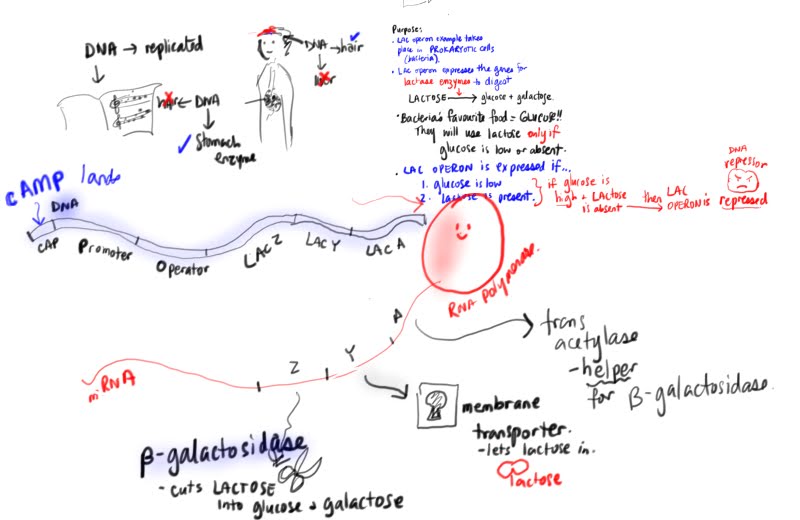 DNA → replicated
DNA → hair
liver
hair ← DNA
Stomach
enzyme
Purpose:
• LAC operon example takes
place in PROKARYOTIC cells
(bacteria).
• Lac operon expresses the genes for
lactase enzymes → to digest
LACTOSE → glucose + galactose.
• Bacteria's favourite food = GLUCOSE!!
They will use lactose only if
glucose is low or absent.
• LAC OPERON is expressed if...
1. glucose is low
2. lactose is present.
if glucose is
high + LActose
is absent
then
LAC
OPERON is
repressed
DNA
repressor
cAMP lands
DNA
CAP
Promoter
Operator
LAC Z
LAC Y
LAC A
RNA polymerase.
mRNA
Z
Y
A
trans
acetylase
- helper
for β-galactosidase.
membrane
transporter.
- lets lactose in.
lactose
β-galactosidase
- cuts LACTOSE
into glucose + galactose